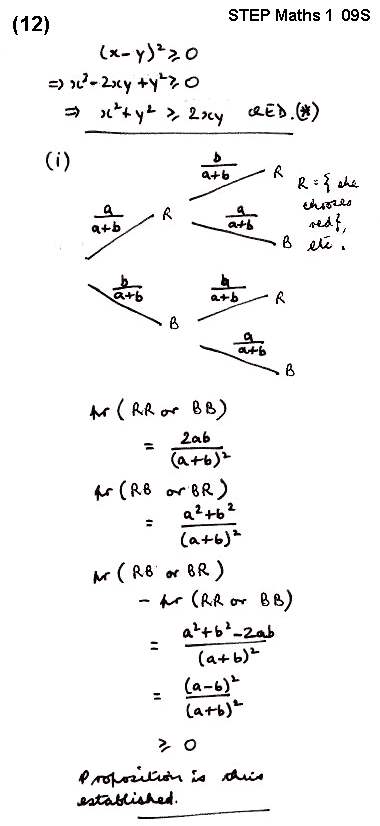 STEP Maths 1 09S
(12)
(x-y)² ≥ 0
⇒ x²-2xy+y² ≥ 0
⇒ x²+y² ≥ 2xy QED. (*)
(i)
b/(a+b) R
R = { she
chooses
red},
etc.
a/(a+b) R
a/(a+b) B
b/(a+b) B
b/(a+b) R
a/(a+b) B
pr (RR or BB)
= 2ab/(a+b)²
pr (RB or BR)
= (a²+b²)/(a+b)²
pr (RB or BR)
- pr (RR or BB)
= (a²+b²-2ab)/(a+b)²
= (a-b)²/(a+b)²
≥ 0
Proposition is thus
established.